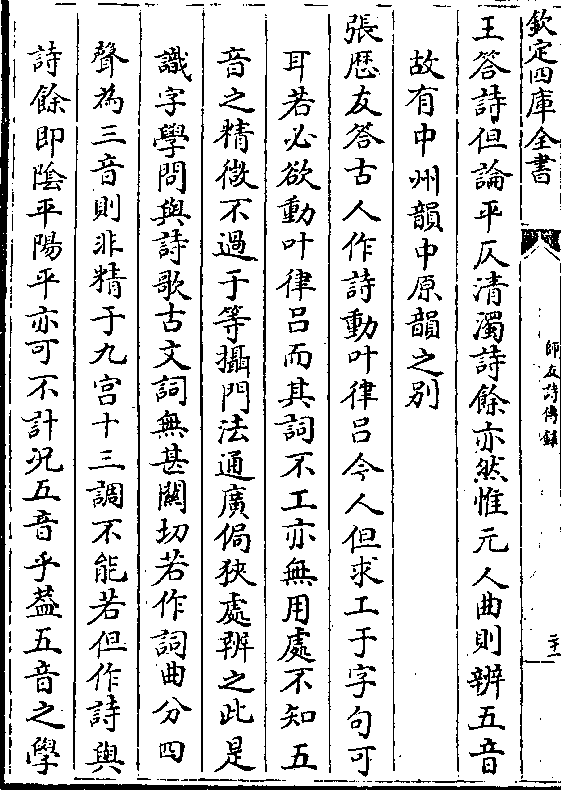 欽定四庫全書
師友詩傳録
二十一
王答詩但論平仄清濁詩餘亦然惟元人曲則辨五音
故有中州韻中原韻之别
張歴友答古人作詩動叶律呂今人但求工于字句可
耳若必欲動叶律呂而其詞不工亦無用處不知五
音之精微不過于等攝門法通廣侷狹處辨之此是
識字學問與詩歌古文詞無甚關切若作詞曲分四
聲為三音則非精于九宫十三調不能若但作詩與
詩餘即陰平陽平亦可不計况五音乎葢五音之學